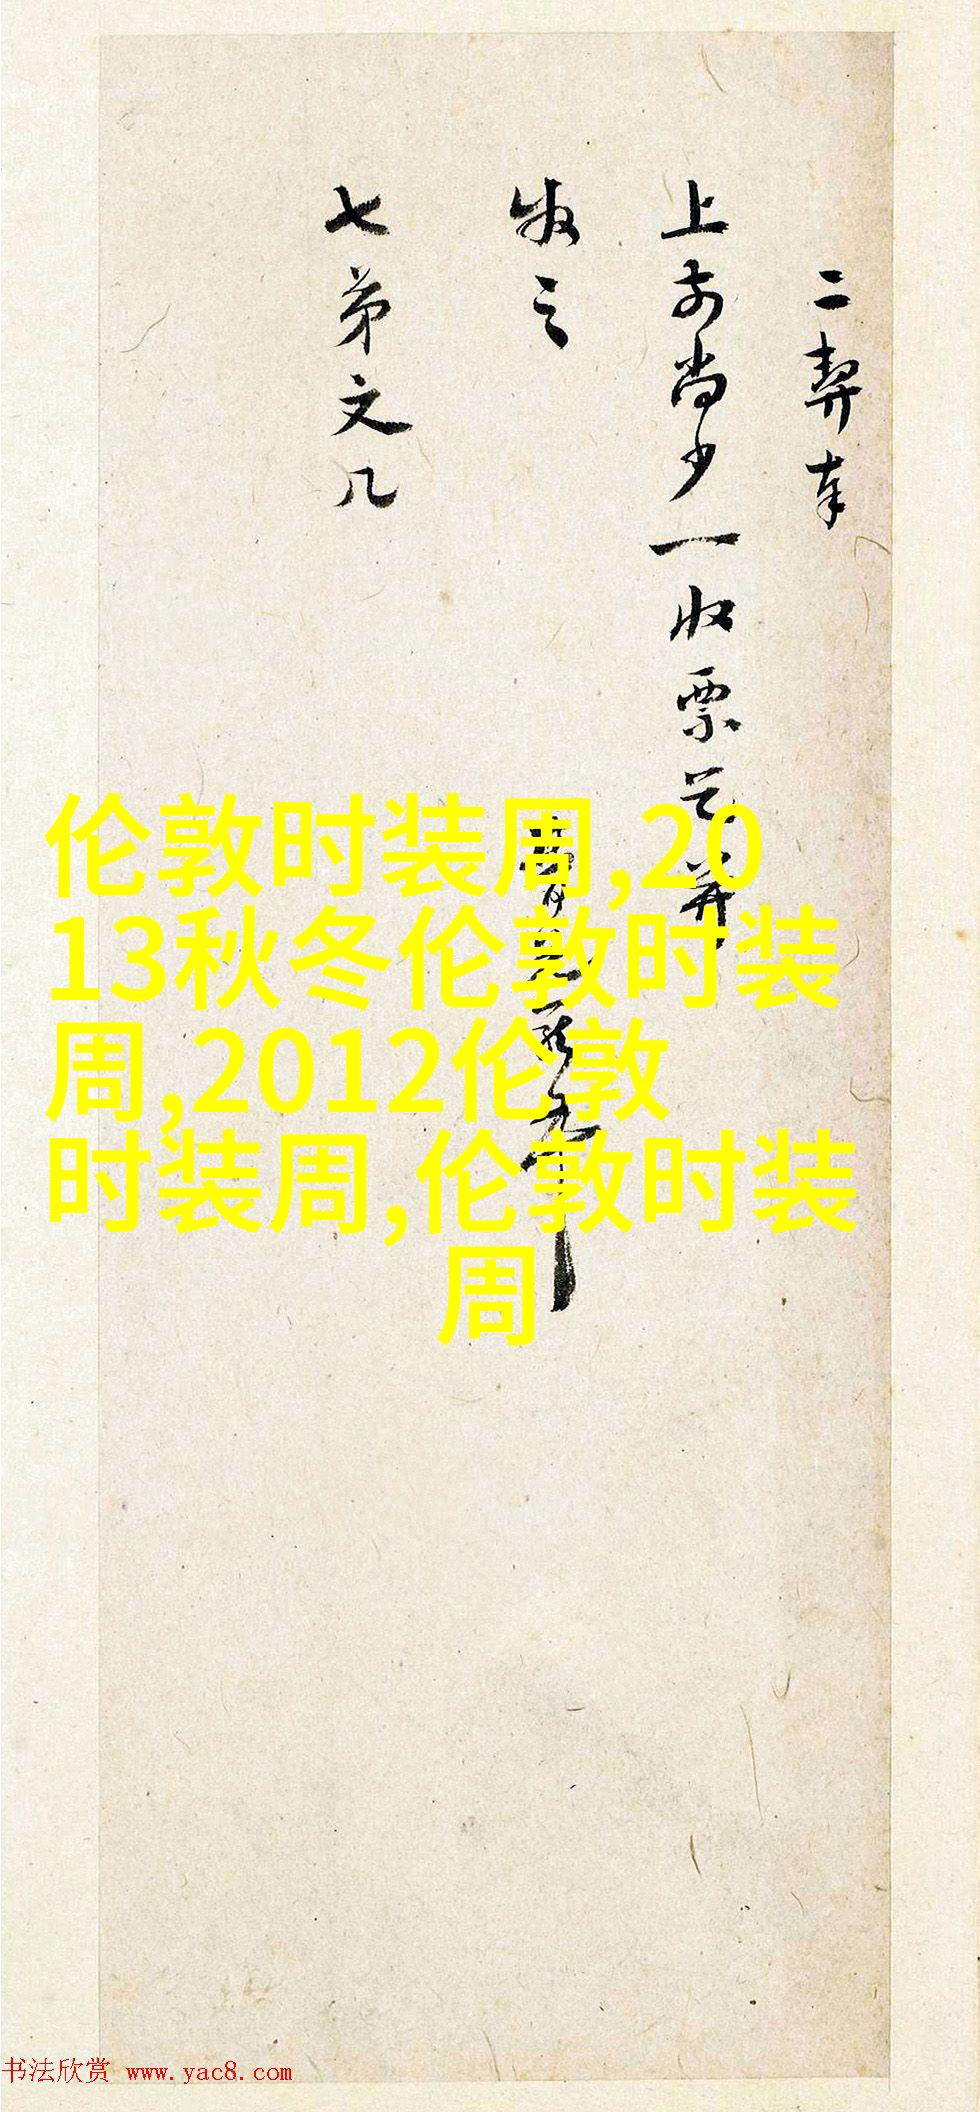 二契奉
上前尚少一收票乞并
收之
七弟文几
伦敦时装周,20
13秋冬伦敦时装
周,2012伦敦
时装周,伦敦时装
周
书法欣赏 www.yac8.com